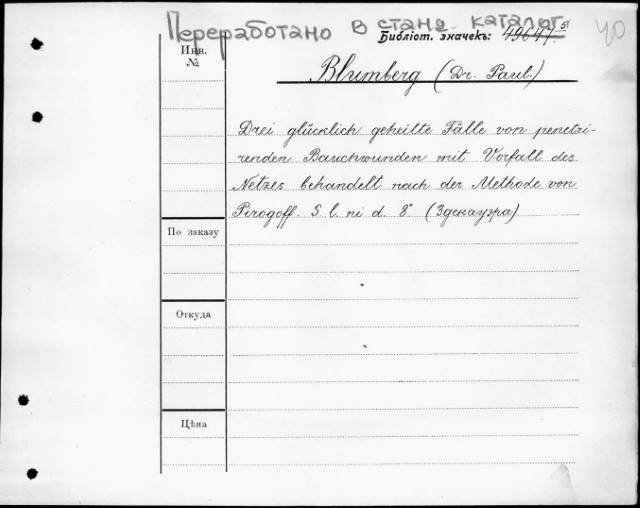 Переработано в станд. каталог
40
Библіот. значекъ: 49647
Инв.
№
Blumberg (Dr. Paul.)
Drei glücklich geheilte Fälle von penetri-
renden Bauchwunden mit Vorfall des
Netzes behandelt nach der Methode von
Pirogoff. S. l. ni d. 8°
По заказу
Откуда
Цѣна